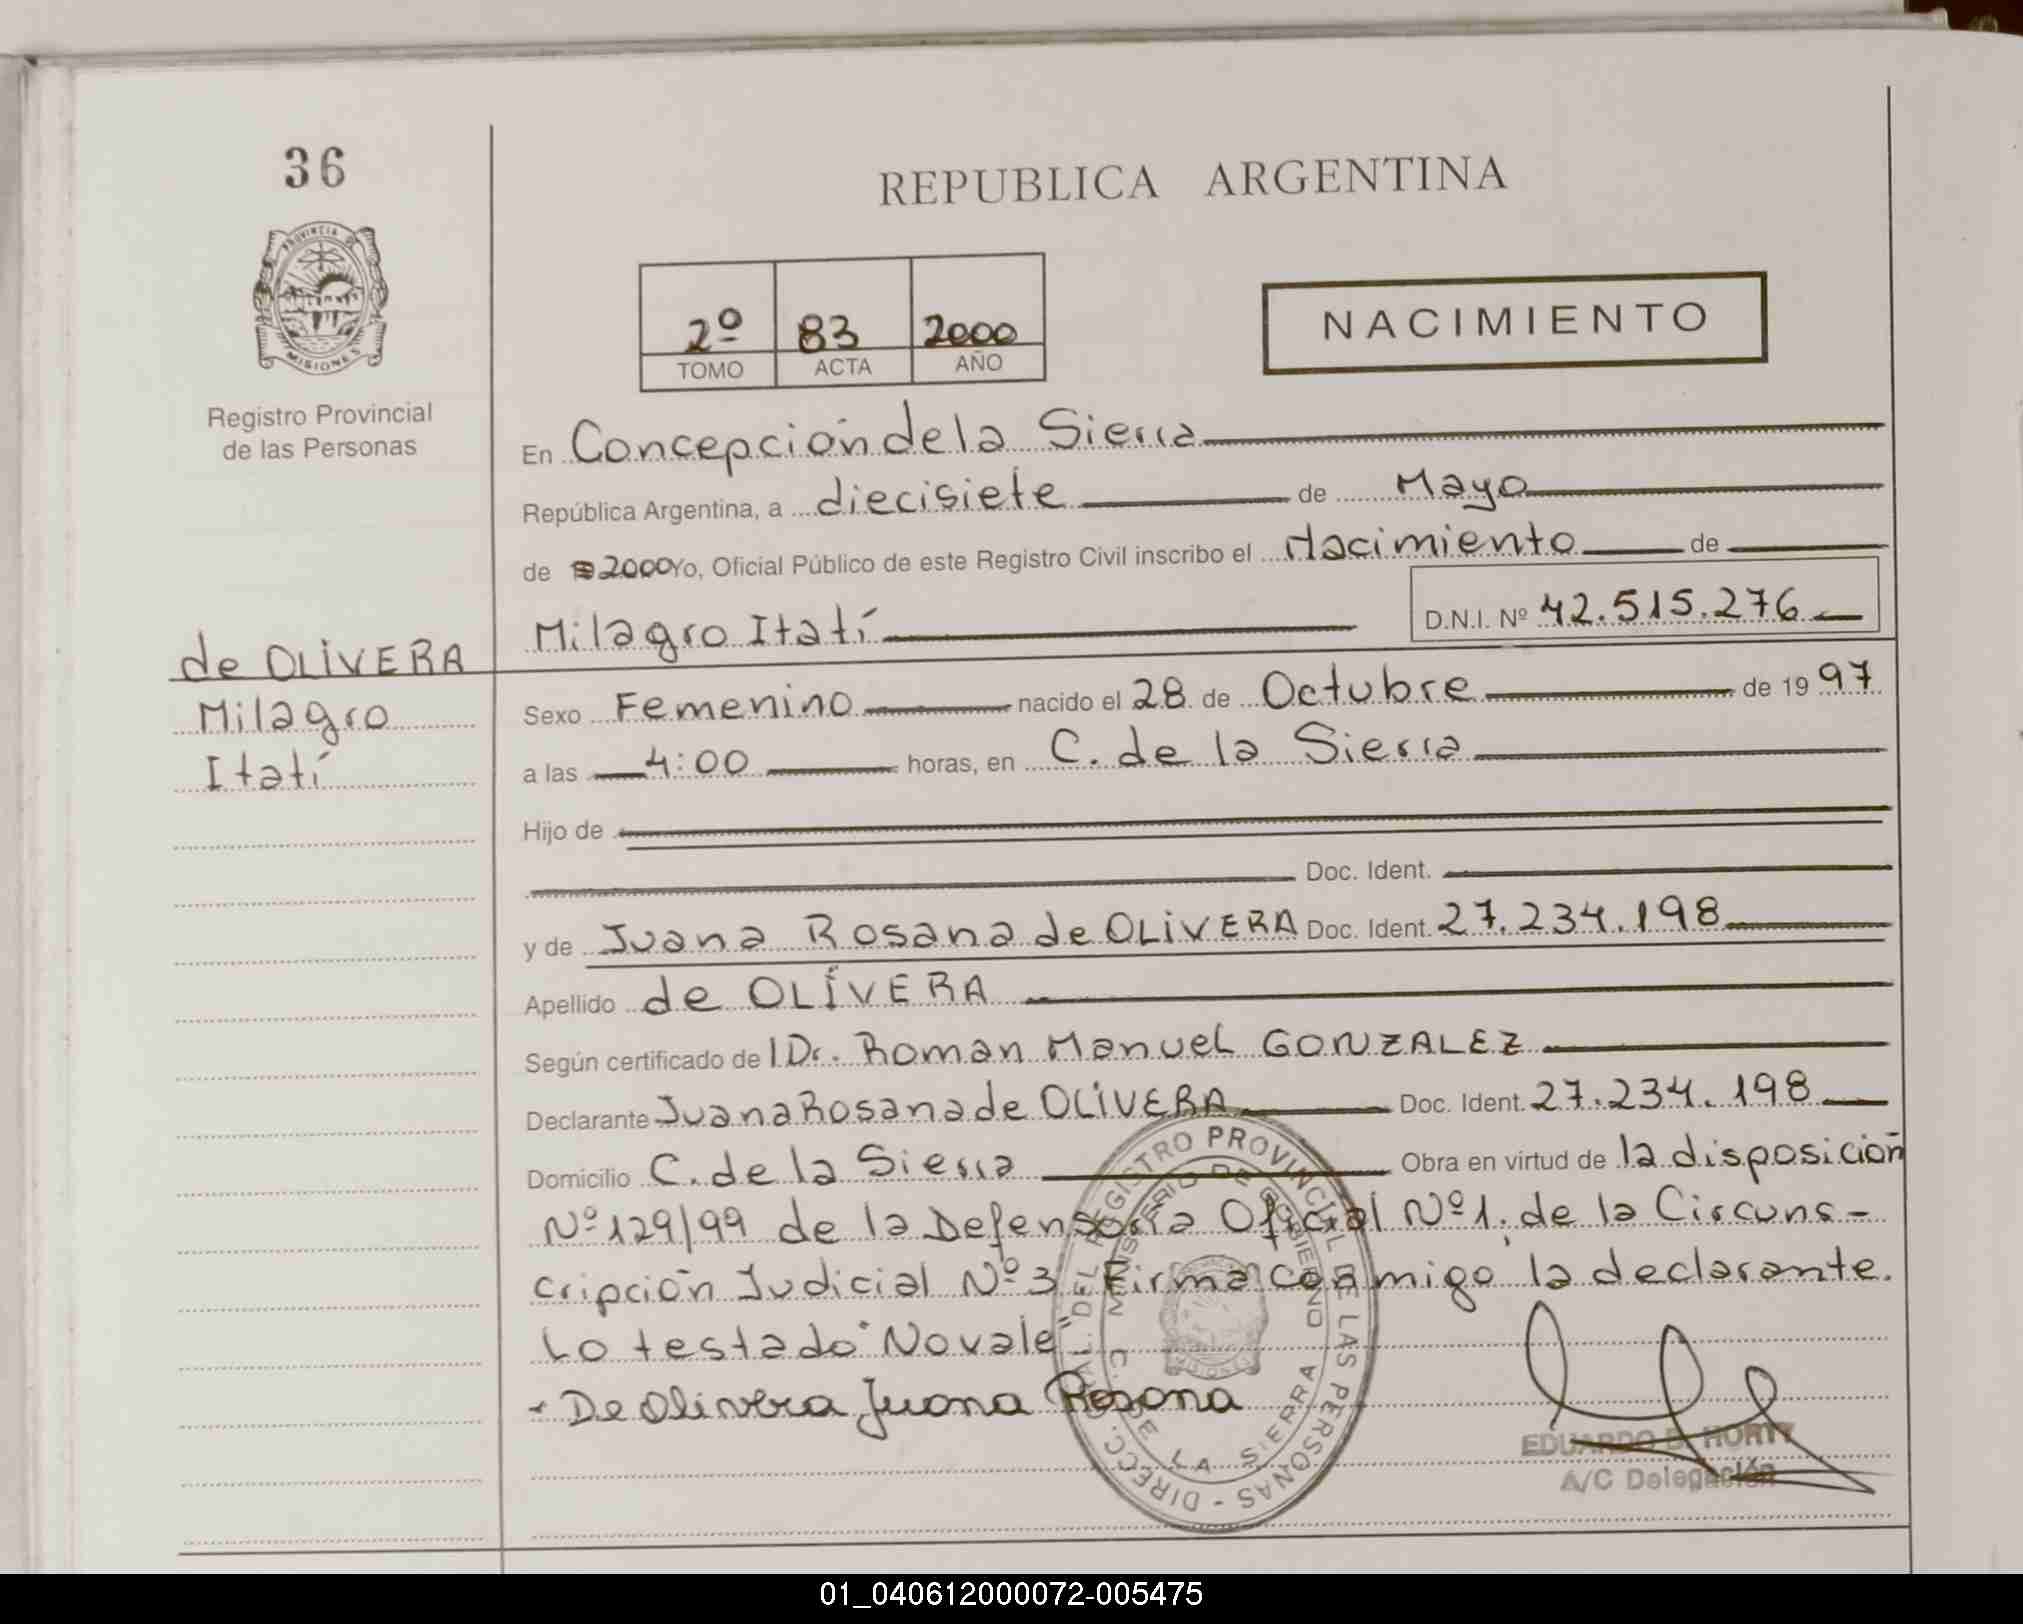 36
REPUBLICA ARGENTINA
PROVINCIA DE
MISIONES
2º 83 2000
TOMO ACTA AÑO
NACIMIENTO
Registro Provincial
de las Personas
En Concepción de la Sierra
República Argentina, a diecisiete de Mayo
de 2000 Yo, Oficial Público de este Registro Civil inscribo el Nacimiento de
Milagro Itatí D.N.I. Nº 42.515.276
de OLIVERA
Milagro
Itatí
Sexo Femenino nacido el 28 de Octubre de 1997
a las 4:00 horas, en C. de la Sierra
Hijo de
Doc. Ident.
y de Juana Rosana de OLIVERA Doc. Ident. 27.234.198
Apellido de OLIVERA
Según certificado de l Dr. Roman Manuel GONZALEZ
Declarante Juana Rosana de OLIVERA Doc. Ident. 27.234.198
Domicilio C. de la Sierra Obra en virtud de la disposición
Nº 129/99 de la Defensoría Oficial Nº 1, de la Circuns-
cripción Judicial Nº 3 Firma conmigo la declarante.
Lo testado "No vale"
- De Olivera Juana Rosana
DIRECC. GRAL. DEL REGISTRO PROVINCIAL DE LAS PERSONAS -
MINISTERIO DE GOBIERNO
C. DE LA SIERRA
MISIONES
EDUARDO D. HORTY
A/C Delegación
01_040612000072-005475